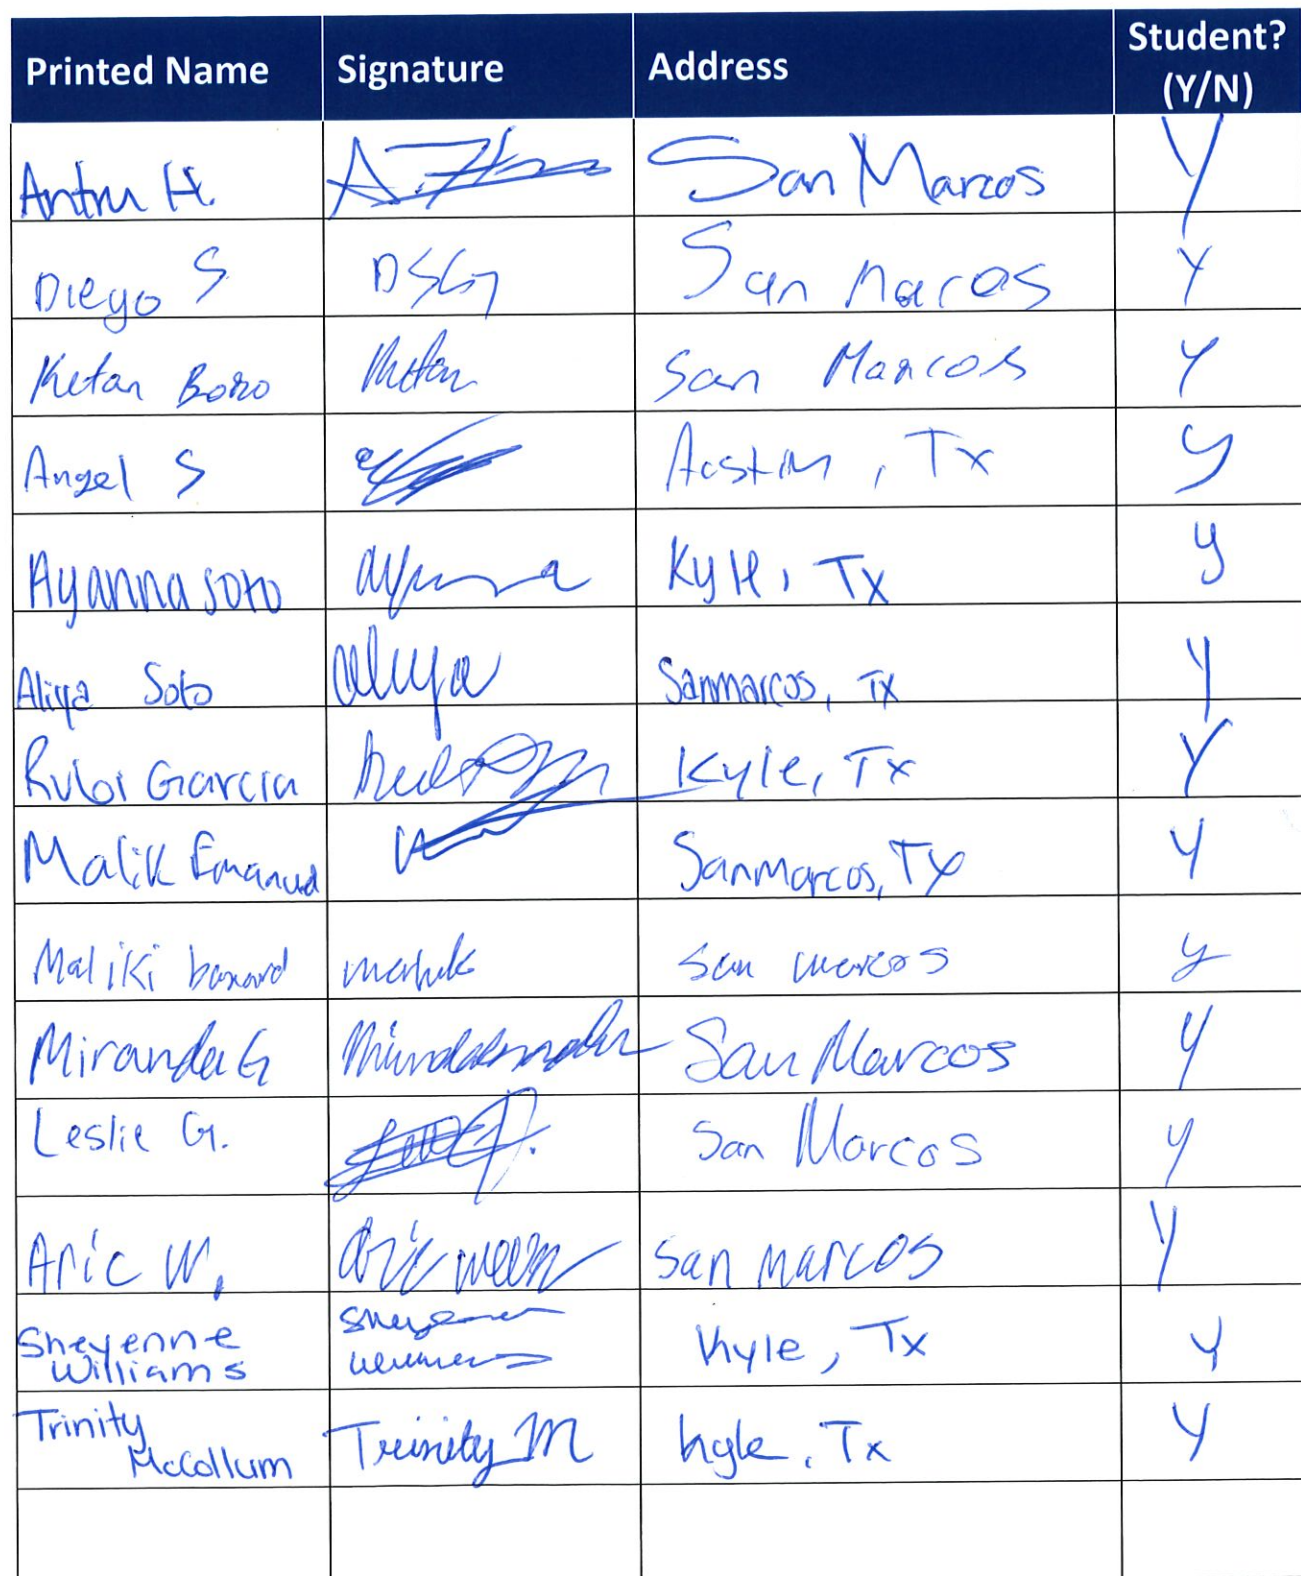 Printed Name Signature Address Student? (Y/N)
Antru H. San Marcos Y
Diego S DSG San Marcos Y
Ketan Boro Ketan San Marcos Y
Angel S Austin, Tx y
Ayanna soto Kyle, Tx y
Aliya Soto aliya Sanmarcos, TX Y
Rubi Garcia Kyle, Tx Y
Malik Emanuel Sanmarcos, TX Y
Maliki San marcos y
Miranda G San Marcos y
Leslie G. San Marcos y
Aric W. aric San marcos Y
Sheyenne
Williams Kyle, Tx y
Trinity
McCollum Trinity M Kyle, Tx Y